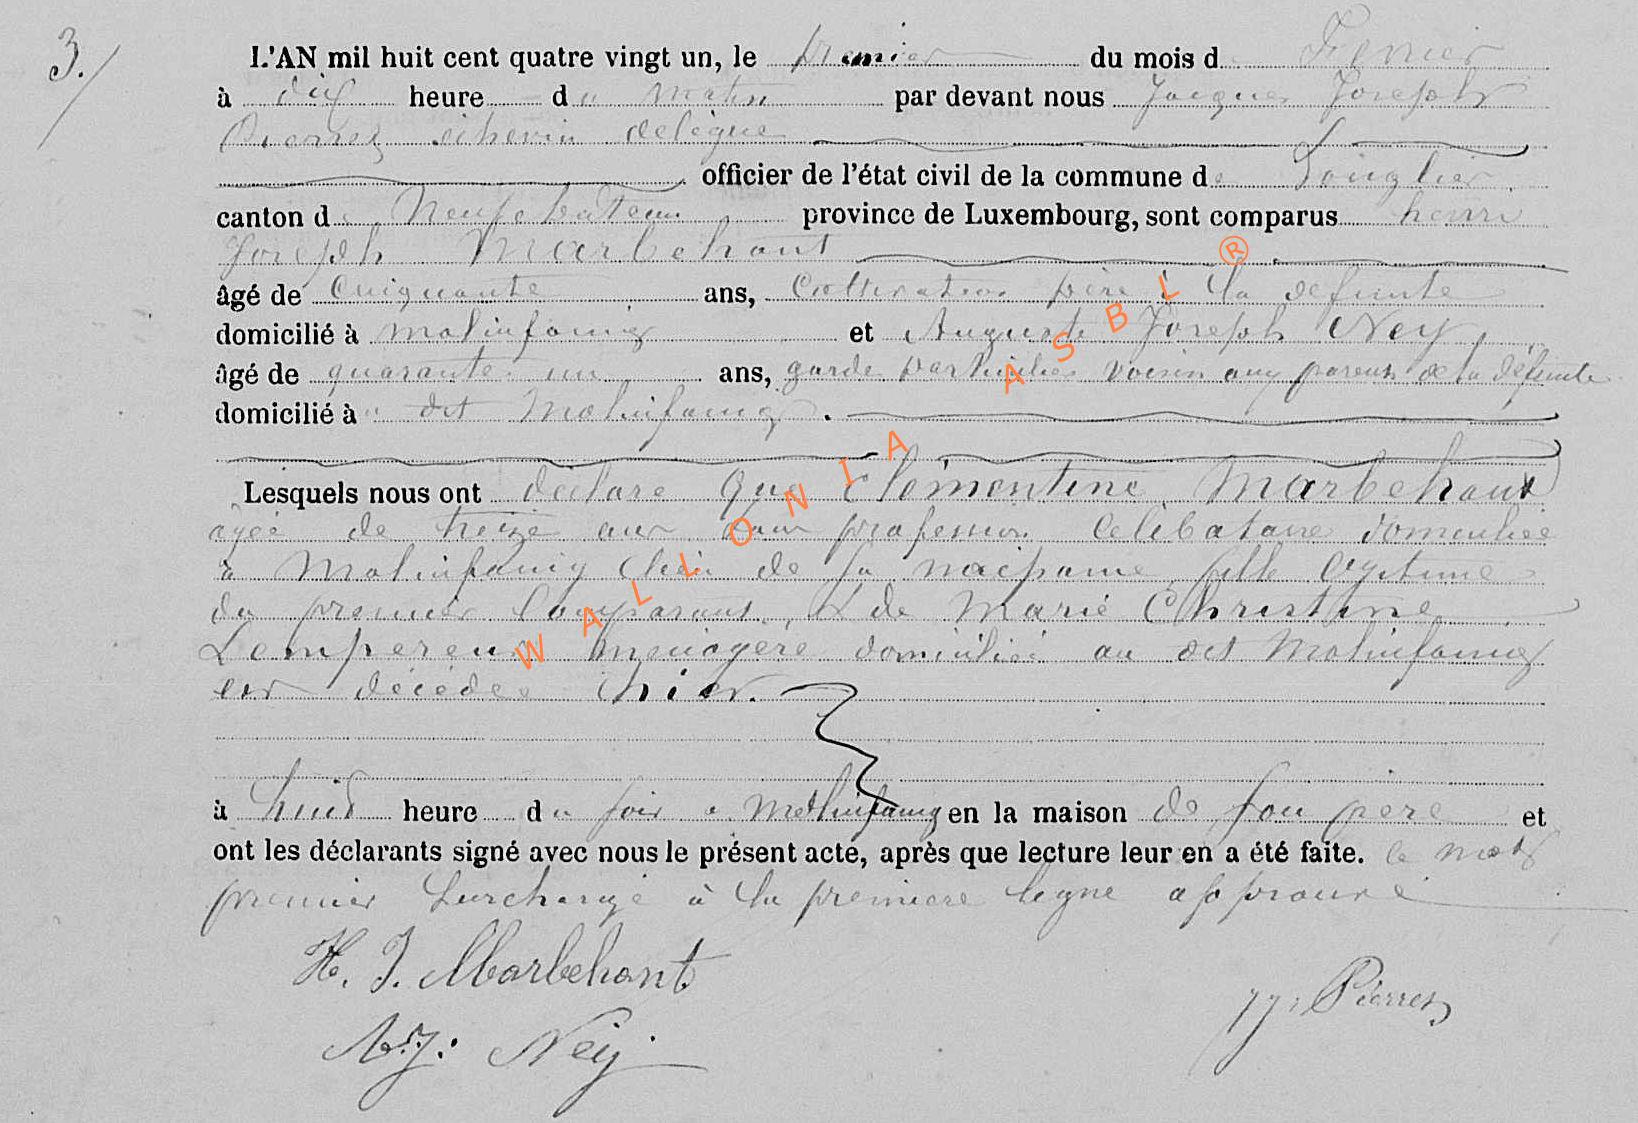 3./
L'AN mil huit cent quatre vingt un, le premier du mois d Fevrier
à dix heure du matin par devant nous Jacques Joseph
Pierrez echevin delégué
officier de l'état civil de la commune de Longlier
canton de Neufchateau province de Luxembourg, sont comparus henri
Joseph Marbehant
âgé de Cinquante ans, Cultivateur père de la défunte
domicilié à molinfaing et Auguste Joseph Ney
âgé de quarante un ans, garde particulier voisin aux parents de la défunte
domicilié à u dit Molinfaing.
Lesquels nous ont déclaré que Clémentine Marbehant
agée de treize ans sans profession Celibataire domiciliée
à Molinfaing lieu de sa naissance fille légitime
du premier Comparant, & de Marie Christine
Lempereur menagère domiciliée au dit Molinfaing
est décédée hier.
à huit heure du soir a Molinfaing en la maison de son père et
ont les déclarants signé avec nous le présent acte, après que lecture leur en a été faite. le mot
premier surchargé à la premiere ligne approuvé
H. J. Marbehant
JJ. Pierrez
A. J. Ney
WALLONIA ASBL ®